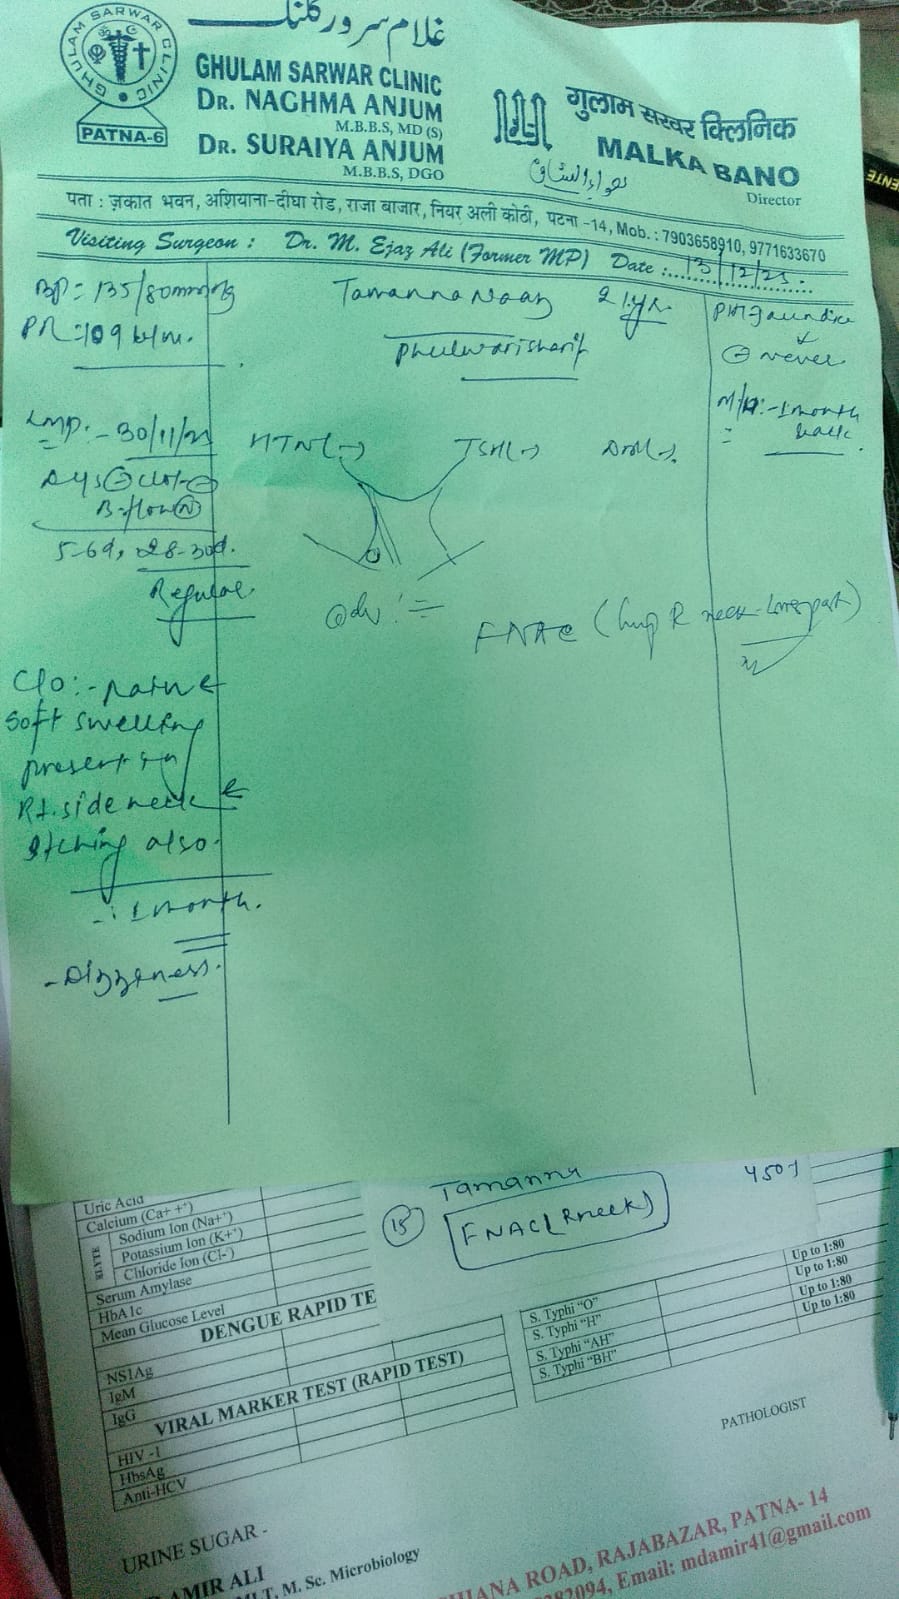 غلام سرور کلنک
GHULAM SARWAR CLINIC
PATNA-6
GHULAM SARWAR CLINIC
DR. NAGHMA ANJUM
M.B.B.S, MD (S)
DR. SURAIYA ANJUM
M.B.B.S, DGO
गुलाम सरवर क्लिनिक
MALKA BANO
Director
पता : ज़कात भवन, अशियाना-दीघा रोड, राजा बाजार, नियर अली कोठी, पटना -14, Mob. : 7903658910, 9771633670
Visiting Surgeon : Dr. M. Ejaz Ali (Former MP) Date : 13/12/25
BP = 135/80mmHg
PR = 109 b/m.
Tamanna Naaz 21yr.
Phulwarisharif
PH Jaundice
never
M/H:-1month
back
LMP:- 30/11/25
HTN(-) TSH(-) DM(-)
Dys clot
B.flow (N)
5-6d, 28-30d.
Regular
Adv :=
FNAC (lump R neck-Lower part)
C/O:- pain &
soft swelling
present in
Rt. side neck &
Itching also.
-: 1 month.
- Dizzeness.
Tamanna
450/-
15
FNAC (R neck)
Uric Acid
Calcium (Ca++)
ELYTE
Sodium Ion (Na+)
Potassium Ion (K+)
Chloride Ion (Cl-)
Serum Amylase
HbA1c
Mean Glucose Level
DENGUE RAPID TE
NS1Ag
IgM
IgG
VIRAL MARKER TEST (RAPID TEST)
HIV -1
HbsAg
Anti-HCV
S. Typhi "O" Up to 1:80
S. Typhi "H" Up to 1:80
S. Typhi "AH" Up to 1:80
S. Typhi "BH" Up to 1:80
PATHOLOGIST
URINE SUGAR -
AMIR ALI
MLT, M. Sc. Microbiology
HIANA ROAD, RAJABAZAR, PATNA- 14
82094, Email: mdamir41@gmail.com